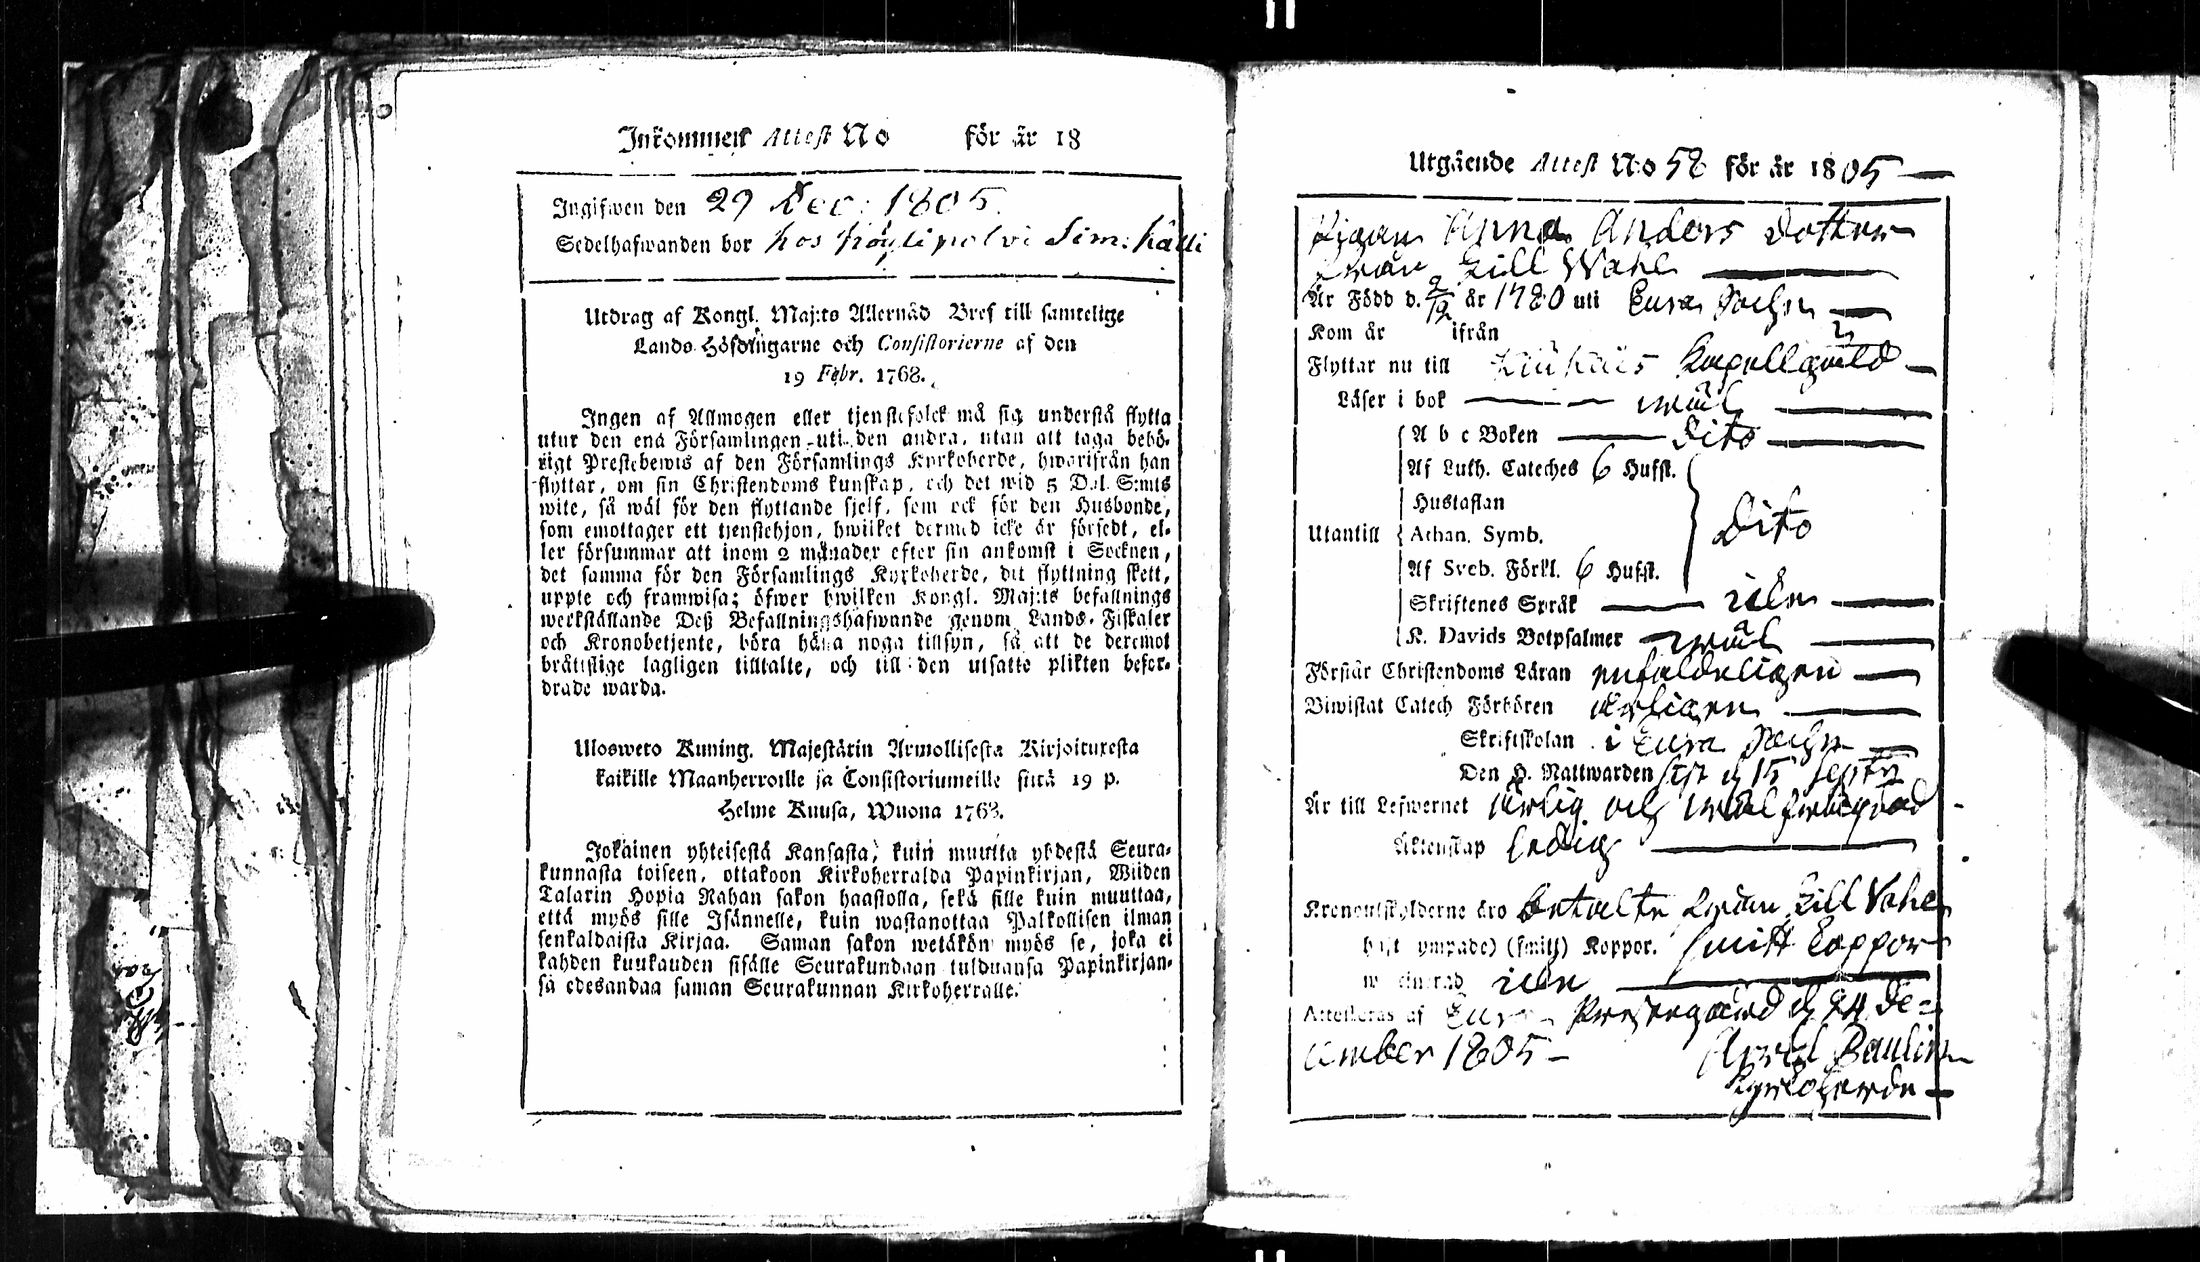 Inkommen Attest No för år 18
Ingifwen den 29 Dec: 1805.
Sedelhafwanden bor hos Sim:
Utdrag af Kongl. Maj:ts Allernåd Bref till samtelige
Lands Höfdingarne och Consistorierne af den
19 Febr. 1768.
Ingen af Allmogen eller tjenstefolck må sig understå flytta
utur den ena Församlingen uti den andra, utan att taga behö-
rigt Prestebewis af den Församlings Kyrkoherde, hwarifrån han
flyttar, om sin Christendoms kunskap, och det wid 5 Dal. S:mts
wite, så wäl för den flyttande sjelf, som ock för den Husbonde,
som emottager ett tjenstehjon, hwilket dermed icke är försedt, el-
ler försummar att inom 2 månader efter sin ankomst i Socknen,
det samma för den Församlings Kyrkoherde, dit flyttning skett,
uppte och framwisa; öfwer hwilken Kongl. Maj:ts befallnings
werkställande Deß Befallningshafwande genom Lands-Fiskaler
och Kronobetjente, böra hafwa noga tillsyn, så att de deremot
bråttslige lagligen tilltalte, och till den utsatte plikten befor-
drade warda.
Uloswето Kuning. Majestätin Armollisesta Kirjoituxesta
kaikille Maanherroille ja Consistoriumeille siitä 19 p.
Helme Kuusa, Wuona 1768.
Jokainen yhteisestä Kansasta, kuin muutta yhdestä Seura-
kunnasta toiseen, ottakoon Kirkoherralda Papinkirjan, Wiiden
Talarin Hopia Rahan sakon haastolla, sekä sille kuin muuttaa,
että myös sille Isännelle, kuin wastanottaa Palkollisen ilman
senkaldaista Kirjaa. Saman sakon wetäkön myös se, joka ei
kahden kuukauden sisälle Seurakundaan tulduansa Papinkirjan-
sa edesandaa saman Seurakunnan Kirkoherralle.
Utgående Attest No 58 för år 1805
Pigan Anna Anders dotter
från Lill Wahe
Är Född d. 2/12 år 1780 uti Eura Sochn
Kom år ifrån
Flyttar nu till Kapellgäld
Läser i bok wäl
A b c Boken dito
Af Luth. Cateches 6 Hufst.
Hustaflan
Utantill Athan. Symb. dito
Af Sveb. Förkl. 6 Hufst.
Skriftenes Språk
K. Davids Botpsalmer wäl
Förstår Christendoms Läran enfaldeligen
Biwistat Catech Förhören årligen
Skriftskolan i Eura Sochn
Den H. Nattwarden sist d 15 Sept
Är till Lefwernet ärlig och wäl
Äktenskap ledig
Kronoutskylderne äro betalte från Lill Vahe
haft (ympade) (smitt) Koppor. smitt koppor
Attesteras af Eura Prestegård d 24 De-
cember 1805 Arvid Paulin
Kyrkoherde